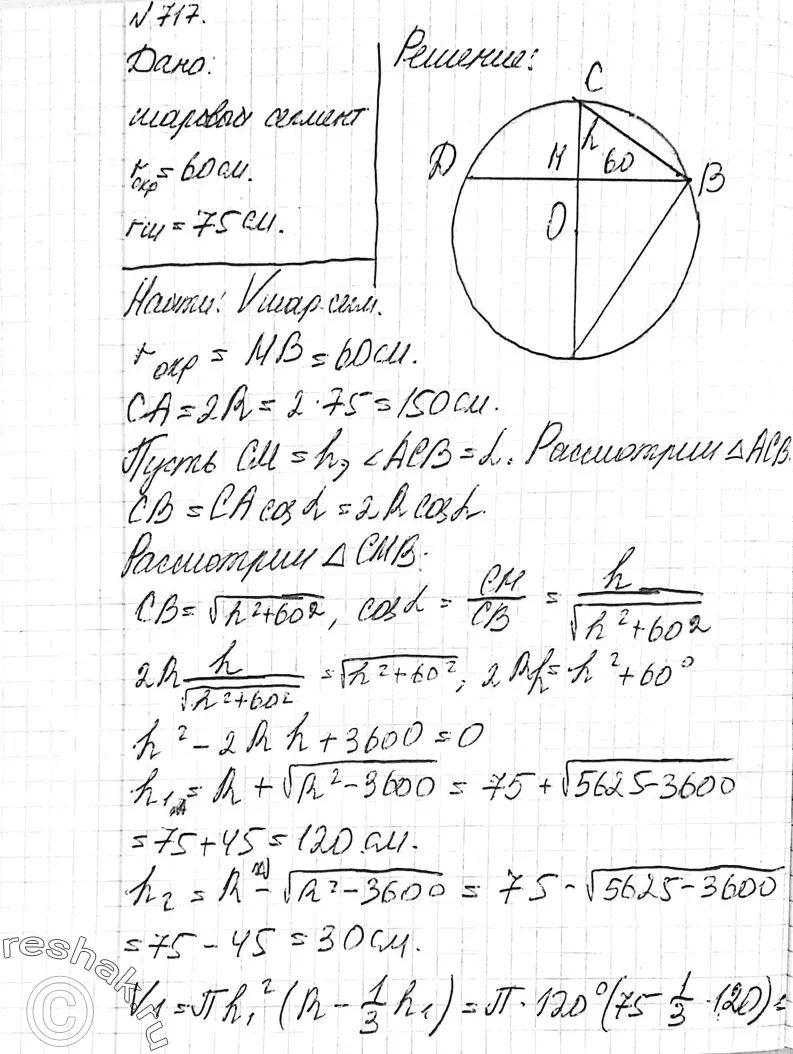 N 717.
Дано:
шаровой сегмент
rокр = 60 см.
rш = 75 см.
Решение:
C
h
D M 60 B
O
Найти: Vшар.сегм.
rокр = MB = 60 см.
CA = 2R = 2·75 = 150 см.
Пусть CM = h, ∠ACB = α. Рассмотрим △ACB.
CB = CA cos α = 2R cos α.
Рассмотрим △CMB:
CB = √(h²+60²), cos α = CM/CB = h/√(h²+60²)
2R h/√(h²+60²) = √(h²+60²); 2Rh = h²+60²
h² - 2Rh + 3600 = 0
h₁ = R + √(R²-3600) = 75 + √(5625-3600)
= 75 + 45 = 120 см.
h₂ = R - √(R²-3600) = 75 - √(5625-3600)
= 75 - 45 = 30 см.
V₁ = Пh₁²(R - 1/3 h₁) = П·120²(75 - 1/3·120) =
reshak.ru
©